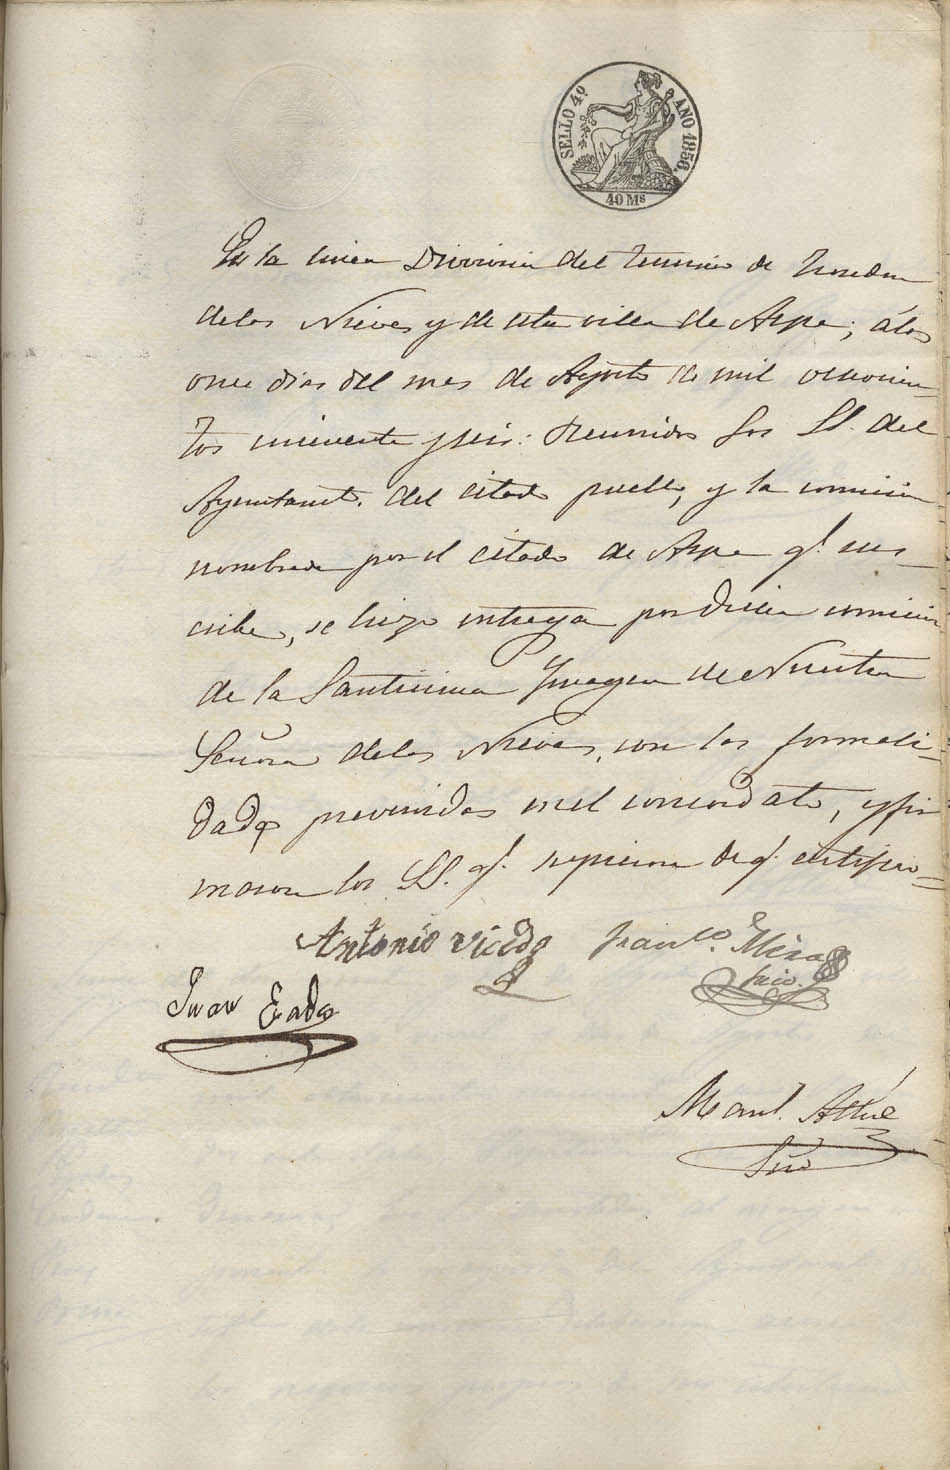 SELLO 4º AÑO 1856.
40 Ms
En la linea Divisoria del termino de Hondon
delos Nieves y de esta villa de Aspe; álos
once dias del mes de Agosto de mil ochocien-
tos cincuenta y seis: Reunidos los SS. del
Ayuntamto. del citado pueblo, y la comision
nombrada por el citado de Aspe q.e sus-
cribe, se hizo entrega por dicha comision
de la Santisima Ymagen de Nuestra
Señora delas Nieves, con las formali-
dades prevenidas en el concordato, y fir-
maron los SS. q.e supieron de q.e certifico=
Antonio Vicedo Franco. Mira
Juan
Manl.
Srio